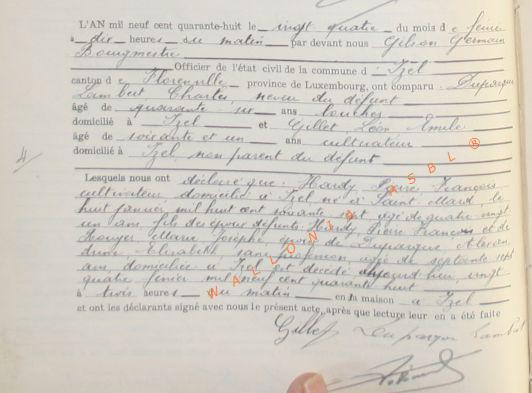 L'AN mil neuf cent quarante-huit le vingt quatre du mois de février
à dix heures du matin par devant nous Gilson Germain
Bourgmestre
Officier de l'état civil de la commune d Izel
canton de Florenville province de Luxembourg, ont comparu Duparque
Lambert Charles, neveu du défunt
âgé de quarante six ans
domicilié à Izel et Gillet Léon Emile
âgé de soixante et un ans cultivateur
domicilié à Izel, non parent du défunt
4
Lesquels nous ont déclaré que Hardy, François
cultivateur domicilié à Izel né à Saint Mard, le
huit mil huit cent soixante sept âgé de quatre vingt
un ans, fils des époux défunts Hardy, Pierre François et de
Marie Josèphe, époux de Duparque
Elisabeth, sans profession, âgée de septante sept
ans, domiciliée à Izel est décédé aujourd'hui, vingt
quatre février mil neuf cent quarante huit
à trois heures du matin en la maison à Izel
et ont les déclarants signé avec nous le présent acte, après que lecture leur en a été faite
Gillet Duparque Lambert
WALLONIA ASBL ®